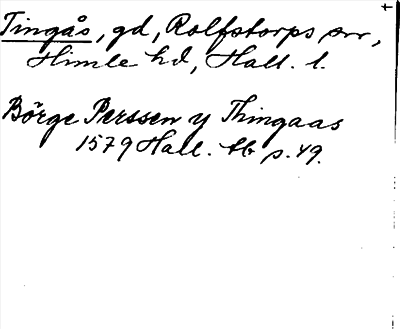 Tingås, gd, Rolfstorps sn,
Himle hd, Hall. l.
Börge Perssen y Thingaas
1579 Hall. tb p. 49.